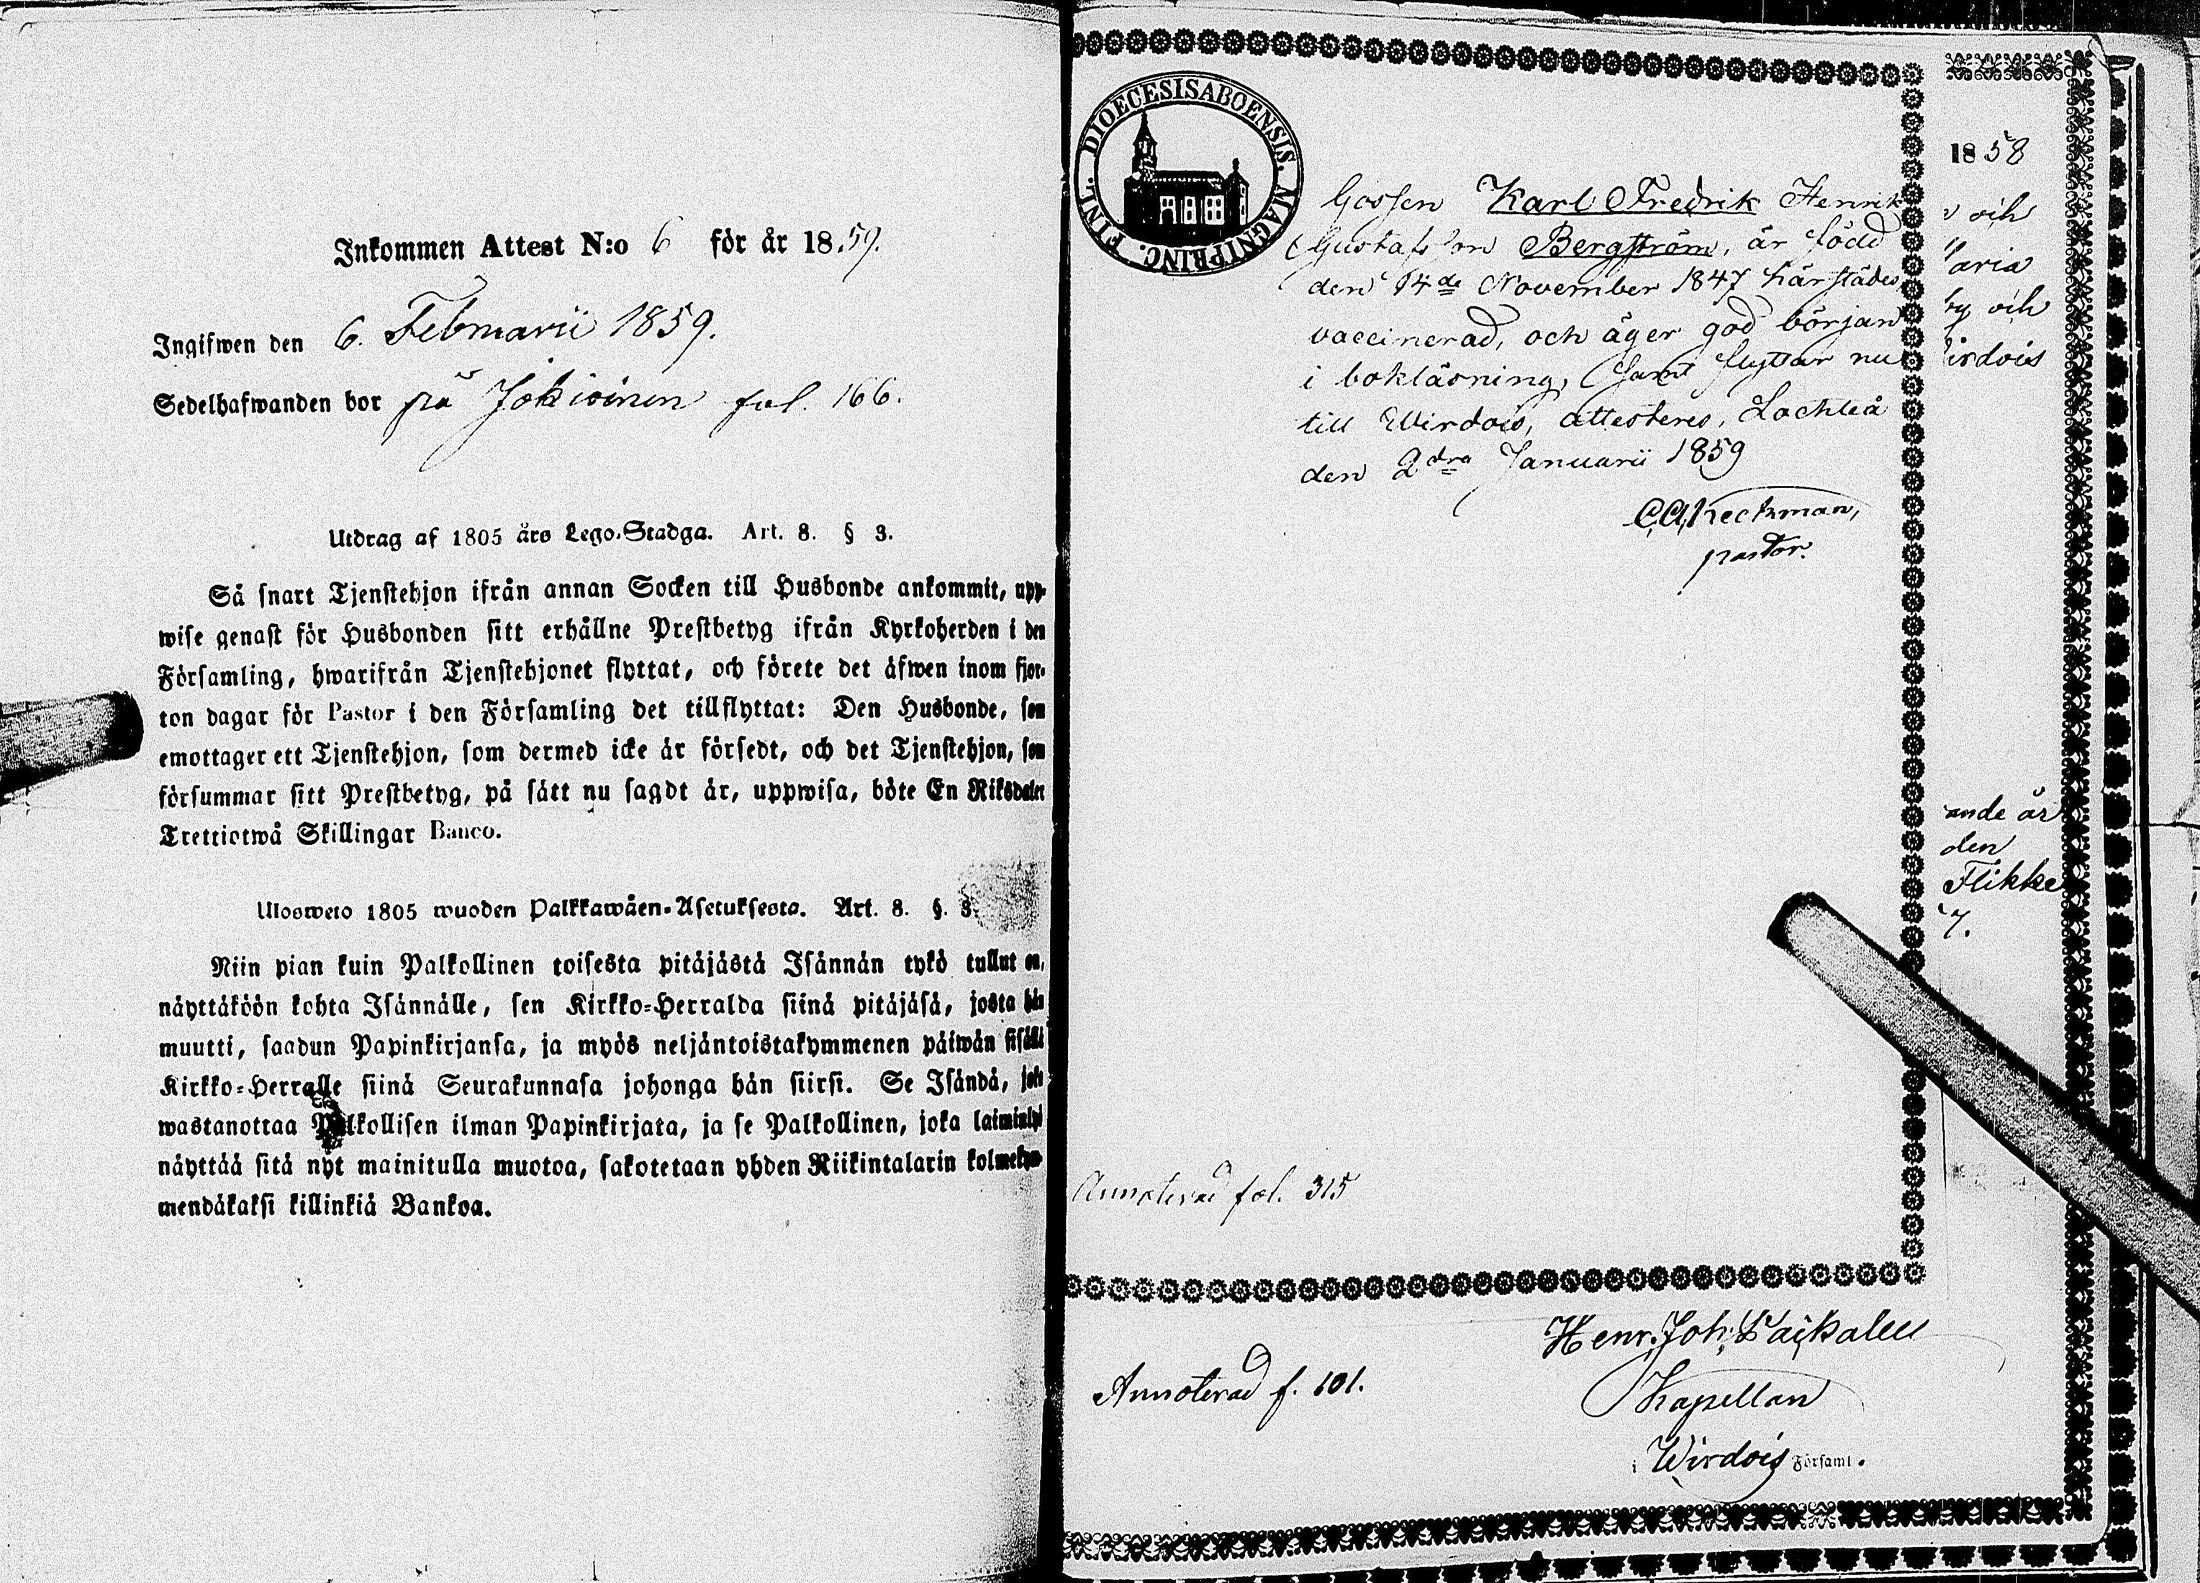 Inkommen Attest N:o 6 för år 18.59.
Ingifwen den 6. Februarii 1859.
Sedelhafwanden bor på Jokioinen fol. 166.
Utdrag af 1805 års Lego-Stadga. Art. 8. § 3.
Så snart Tjenstehjon ifrån annan Socken till Husbonde ankommit, upp-
wise genast för Husbonden sitt erhållne Prestbetyg ifrån Kyrkoherden i den
Församling, hwarifrån Tjenstehjonet flyttat, och förete det äfwen inom fjor-
ton dagar för Pastor i den Församling det tillflyttat: Den Husbonde, som
emottager ett Tjenstehjon, som dermed icke är försedt, och det Tjenstehjon, som
försummar sitt Prestbetyg, på sätt nu sagdt är, uppwisa, böte En Riksdaler
Trettiotwå Skillingar Banco.
Ulosweto 1805 wuoden Palkkawäen-Asetuksesta. Art. 8. §. 3.
Niin pian kuin Palkollinen toisesta pitäjästä Isännän tykö tullut on,
näyttäköön kohta Isännälle, sen Kirkko-Herralda siinä pitäjäsä, josta hän
muutti, saadun Papinkirjansa, ja myös neljäntoistakymmenen päiwän sisällä
Kirkko-Herralle siinä Seurakunnasa johonga hän siirsi. Se Isändä, joka
wastanottaa Palkollisen ilman Papinkirjata, ja se Palkollinen, joka laiminlyö
näyttää sitä nyt mainitulla muotoa, sakotetaan yhden Riikintalarin kolmekym-
mendäkaksi killinkiä Bankoa.
DIOECESIS ABOENSIS. MAGNI PRINC. FINL.
Gossen Karl Fredrik Henrik
Gustafsson Bergström, är född
den 14de November 1847 härstädes,
vaccinerad, och äger god början
i bokläsning, samt flyttar nu
till Wirdois, attesteres, Lochteå
den 2dra Januarii 1859
C.A. Keckman,
pastor.
Annoterad fol. 315
1858
och
aria
by och
irdois
ande är
den
Flikke
7.
Annoterad f. 101.
Henr. Joh.
Kapellan
i Wirdois Församl.